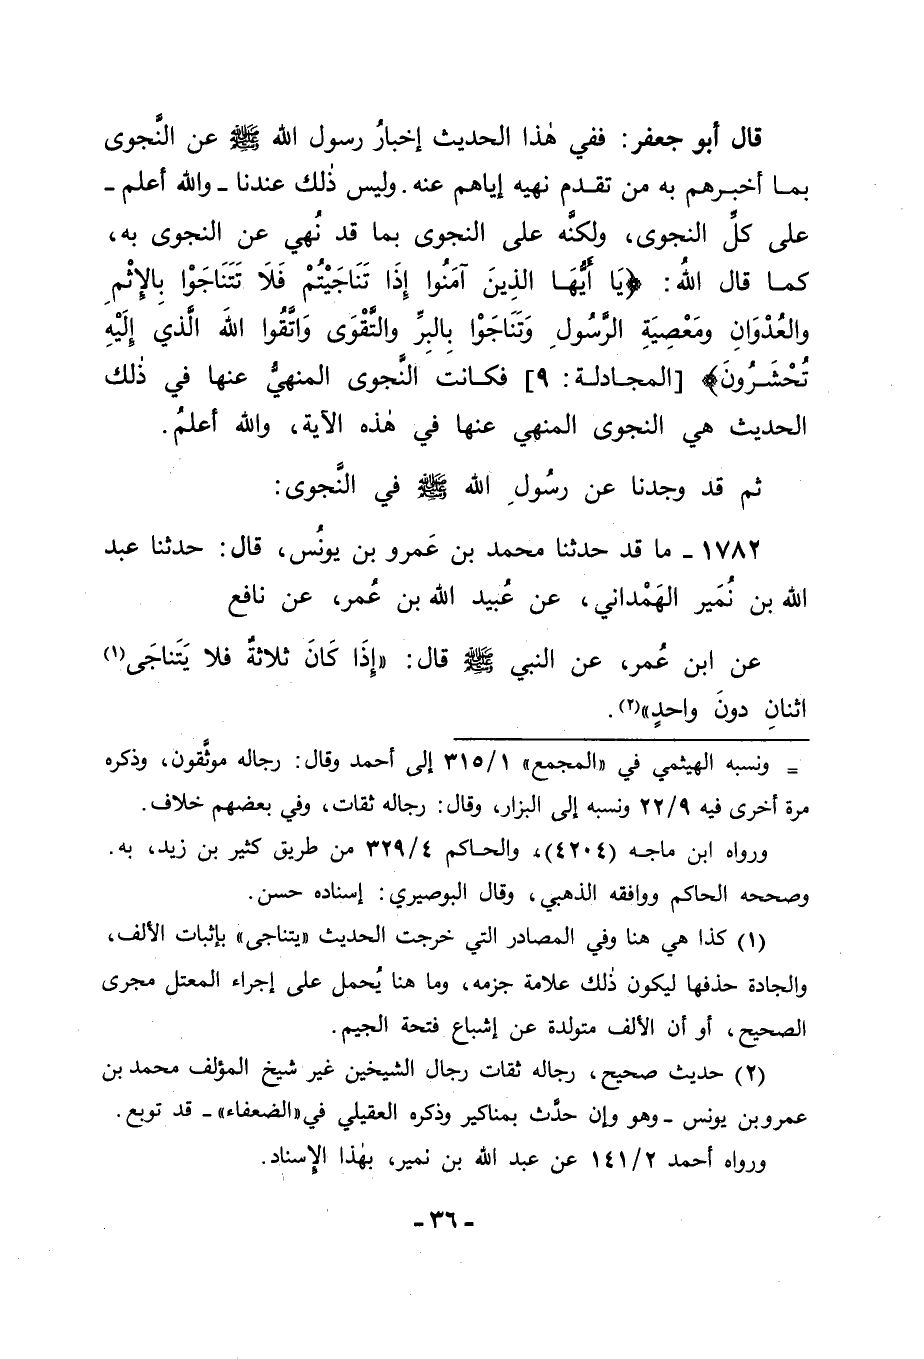 قال أبو جعفر: ففي هٰذا الحديث إخبارُ رسول الله ﷺ عن النَّجوى
بمـا أخبـرهم به من تقـدم نهيه إياهم عنه. وليس ذٰلك عندنا ـ والله أعلم ـ
على كلِّ النجوى، ولكنَّه على النجوى بما قد نُهي عن النجوى به،
كمـا قال اللهُ: ﴿يَا أَيُّهَـا الذينَ آمَنُوا إِذَا تَنَاجَيْتُمْ فَلَا تَتَنَاجَوْا بِالإِثْمِ
والعُدْوَانِ ومَعْصِيَةِ الرَّسُولِ وَتَنَاجَوْا بالبِرِّ والتَّقْوَى وَاتَّقُوا اللهَ الَّذي إِلَيْهِ
تُحْشَـرُونَ﴾ [المجـادلـة: ٩] فكـانت النَّجوى المنهيُّ عنها في ذٰلك
الحديث هي النجوى المنهي عنها في هٰذه الآية، والله أعلمُ.
ثم قد وجدنا عن رسُولِ الله ﷺ في النَّجوى:
١٧٨٢ ـ ما قد حدثنا محمد بن عَمرو بن يونُس، قال: حدثنا عبد
الله بن نُمَير الهَمْداني، عن عُبيد الله بن عُمر، عن نافع
عن ابن عُمر، عن النبي ﷺ قال: «إِذَا كَانَ ثلاثةٌ فلا يَتَناجَى(١)
اثنانِ دونَ واحدٍ»(٢).
= ونسبه الهيثمي في «المجمع» ٣١٥/١ إلى أحمد وقال: رجاله موثَّقون، وذكره
مرة أخرى فيه ٢٢/٩ ونسبه إلى البزار، وقال: رجاله ثقات، وفي بعضهم خلاف.
ورواه ابن ماجـه (٤٢٠٤)، والحـاكم ٣٢٩/٤ من طريق كثير بن زيد، به.
وصححه الحاكم ووافقه الذهبي، وقال البوصيري: إسناده حسن.
(١) كذا هي هنا وفي المصادر التي خرجت الحديث «يتناجى» بإثبات الألف،
والجادة حذفها ليكون ذٰلك علامة جزمه، وما هنا يُحمل على إجراء المعتل مجرى
الصحيح، أو أن الألف متولدة عن إشباع فتحة الجيم.
(٢) حديث صحيح، رجاله ثقات رجال الشيخين غير شيخ المؤلف محمد بن
عمرو بن يونس ـ وهو وإن حدَّث بمناكير وذكره العقيلي في «الضعفاء» ـ قد توبع.
ورواه أحمد ١٤١/٢ عن عبد الله بن نمير، بهٰذا الإسناد.
ـ ٣٦ ـ